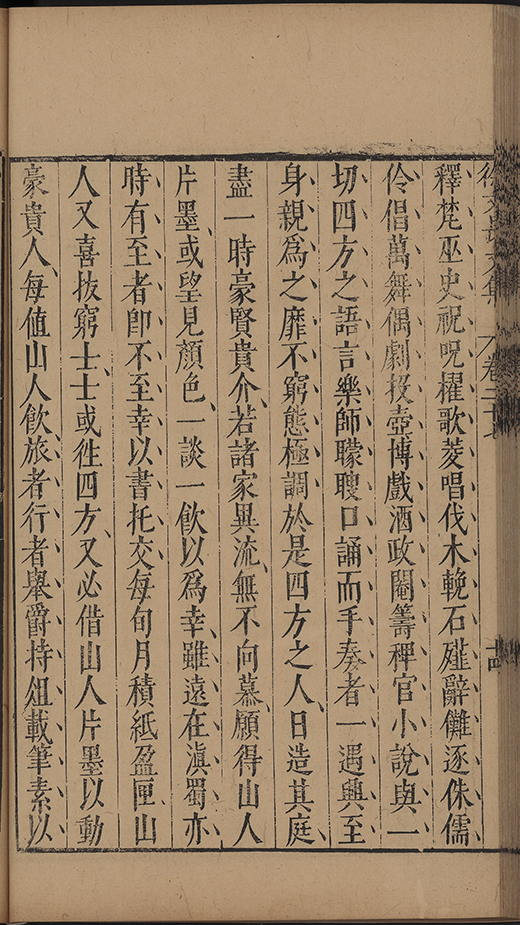 徐文長文集 卷二十七
釋梵巫史祝呪櫂歌菱唱伐木輓石殣辭儺逐侏儒
伶倡萬舞偶劇投壺博戲酒政鬮籌稗官小說與一
切四方之語言樂師矇瞍口誦而手奏者一遇興至
身親爲之靡不窮態極調於是四方之人日造其庭
盡一時豪賢貴介若諸家異流無不向慕願得山人
片墨或望見顏色一談一飲以爲幸雖遠在滇蜀亦
時有至者卽不至幸以書托交每旬月積紙盈匣山
人又喜拔窮士士或徃四方又必借山人片墨以動
豪貴人每值山人飲旅者行者舉爵持俎載筆素以